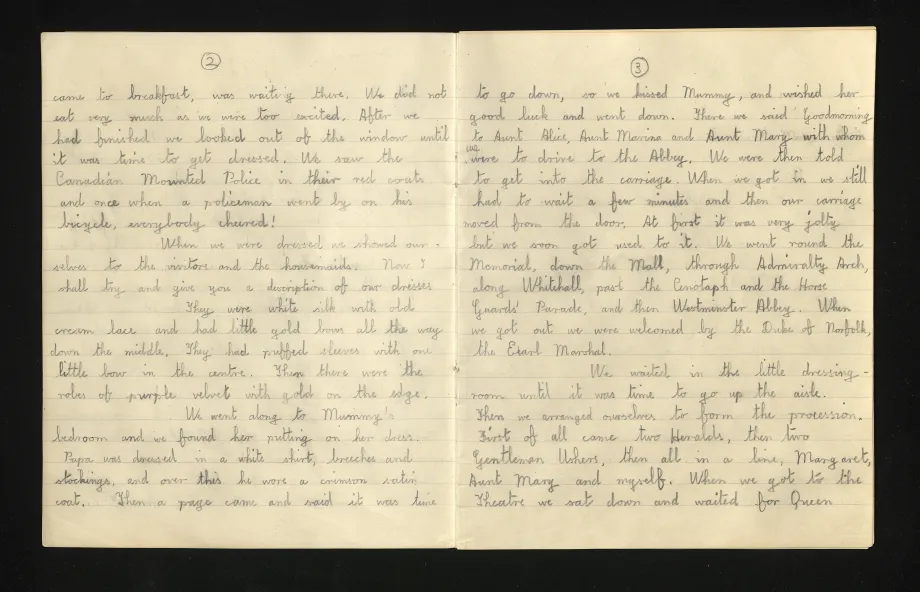 2
came to breakfast, was waiting there. We did not
eat very much as we were too excited. After we
had finished we looked out of the window until
it was time to get dressed. We saw the
Canadian Mounted Police in their red coats
and once when a policeman went by on his
bicycle, everybody cheered!
When we were dressed we showed our-
selves to the visitors and the housemaids. Now I
shall try and give you a description of our dresses
They were white silk with old
cream lace and had little gold bows all the way
down the middle. They had puffed sleeves with one
little bow in the centre. Then there were the
robes of purple velvet with gold on the edge.
We went along to Mummy's
bedroom and we found her putting on her dress.
Papa was dressed in a white shirt, breeches and
stockings, and over this he wore a crimson satin
coat. Then a page came and said it was time
3
to go down, so we kissed Mummy, and wished her
good luck and went down. There we said Goodmorning
to Aunt Alice, Aunt Marina and Aunt Mary with whom
we
were to drive to the Abbey. We were then told
to get into the carriage. When we got in we still
had to wait a few minutes and then our carriage
moved from the door. At first it was very jolty
but we soon got used to it. We went round the
Memorial, down the Mall, through Admiralty Arch,
along Whitehall, past the Cenotaph and the Horse
Guards' Parade, and then Westminster Abbey. When
we got out we were welcomed by the Duke of Norfolk,
the Earl Marshal.
We waited in the little dressing-
room until it was time to go up the aisle.
Then we arranged ourselves to form the procession.
First of all came two Heralds, then two
Gentleman Ushers, then all in a line, Margaret,
Aunt Mary and myself. When we got to the
Theatre we sat down and waited for Queen